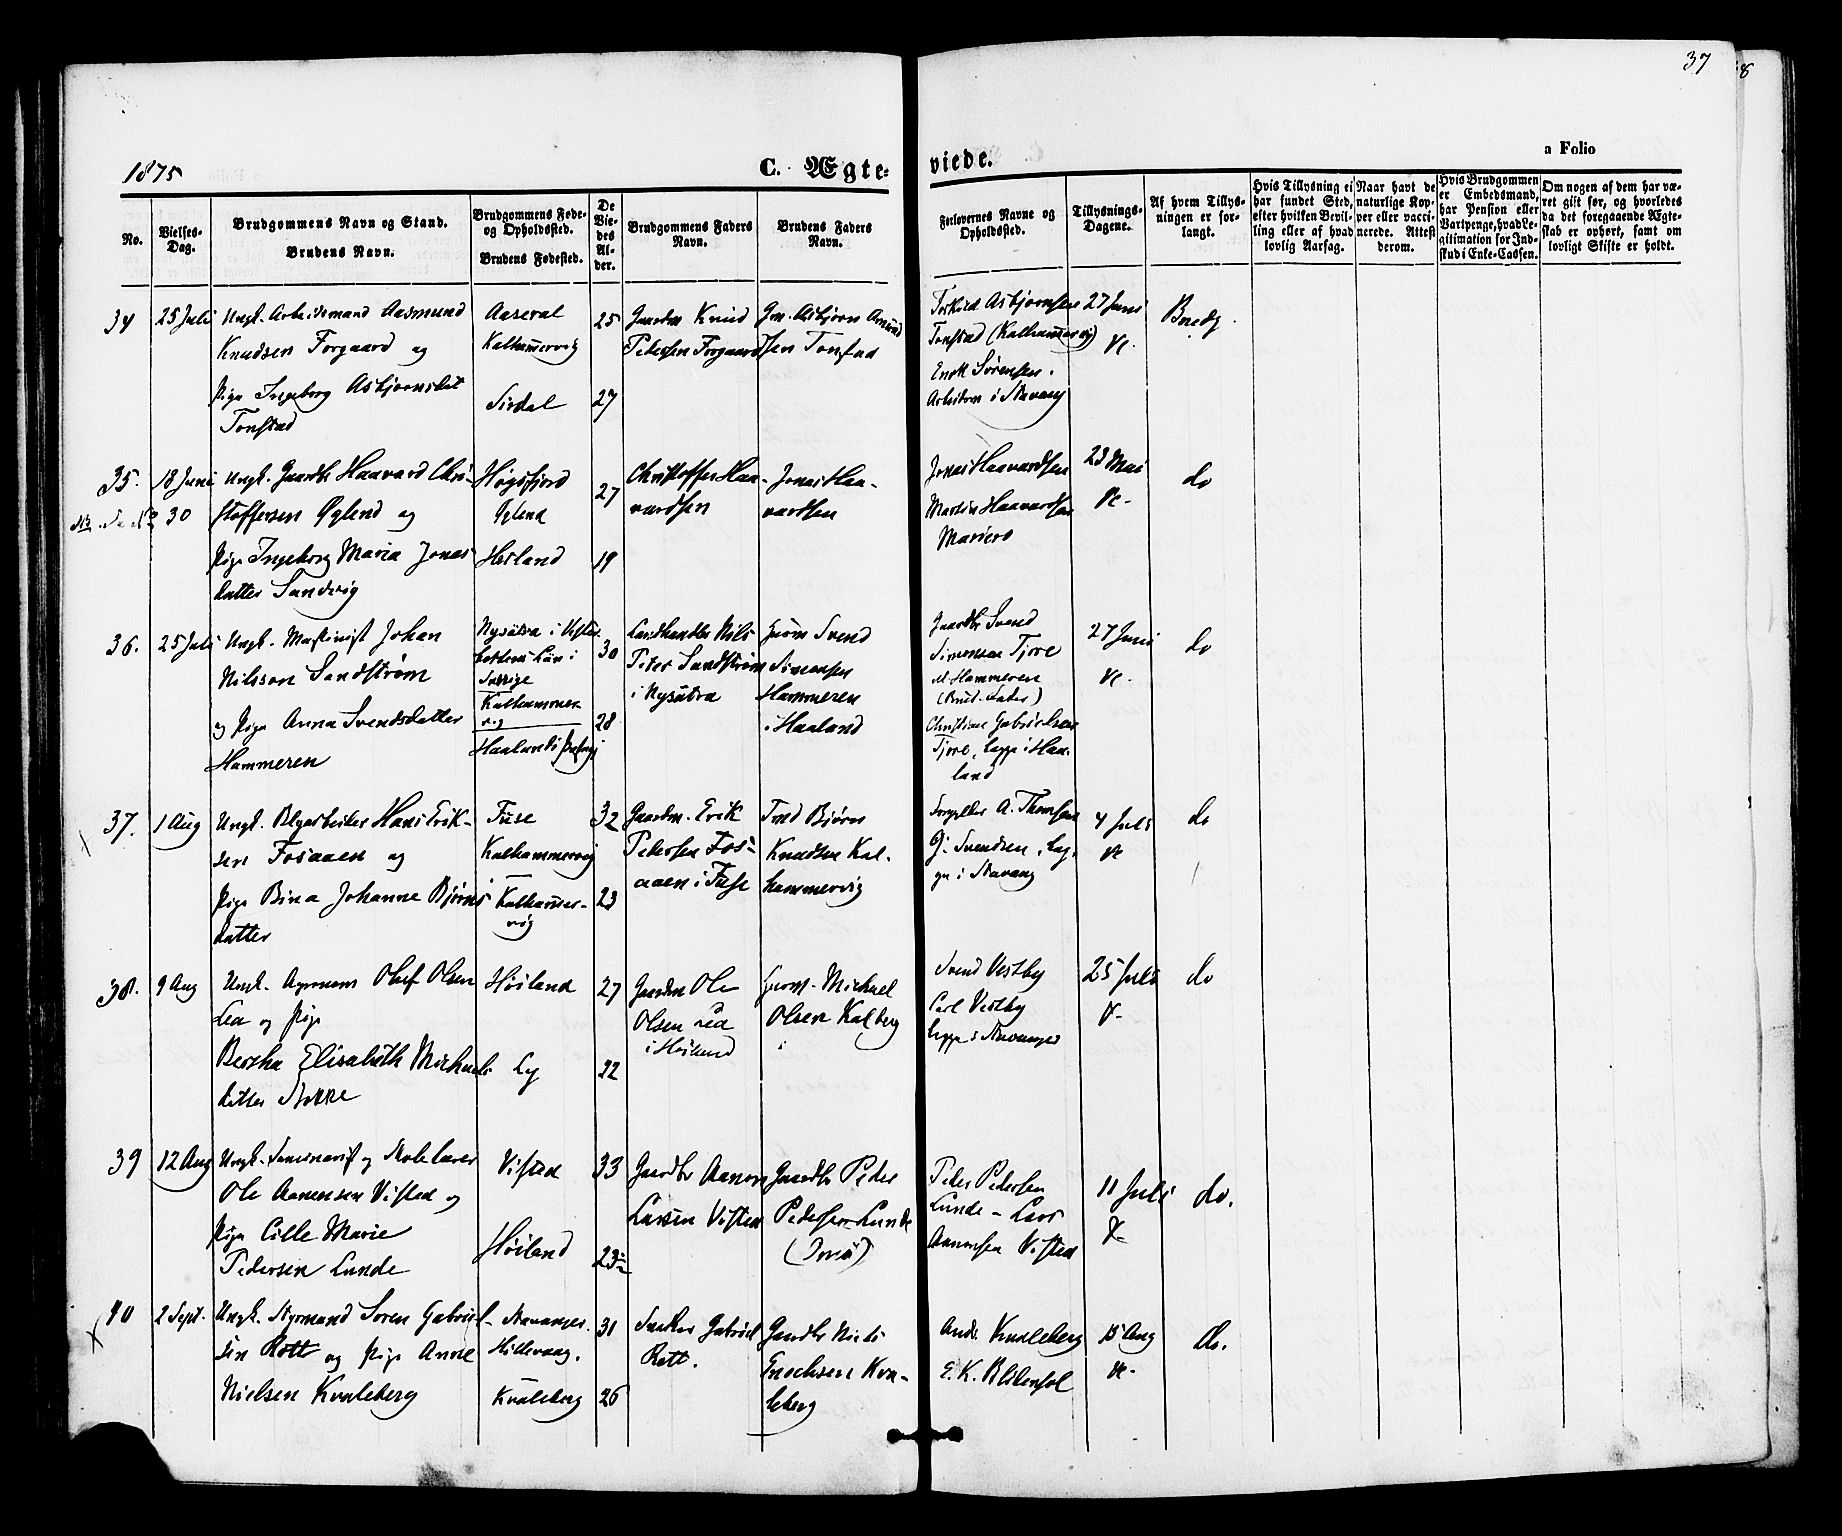 37
8
1875
C. Ægte-
viede.
a Folio
No.
Vielses-
Dag.
Brudgommens Navn og Stand.
Brudens Navn.
Brudgommens Føde-
og Opholdssted.
Brudens Fødested.
De
Vie-
des
Al-
der.
Brudgommens Faders
Navn.
Brudens Faders
Navn.
Forlovernes Navne og
Opholdssted.
Tillysnings-
Dagene.
Af hvem Tillys-
ningen er for-
langt.
Hvis Tillysning ei
har fundet Sted,
efter hvilken Bevil-
ling eller af hvad
lovlig Aarsag.
Naar havt de
naturlige Kop-
per eller vacci-
nerede. Attest
derom.
Hvis Brudgommen
er Embedsmand,
har Pension eller
Vartpenge, hvad Le-
gitimation for Ind-
skud i Enke-Cassen.
Om nogen af dem har væ-
ret gift før, og hvorledes
da det foregaaende Ægte-
skab er ophørt, samt om
lovligt Skifte er holdt.
34 25 Juli Ungk. Arbeidsmand Aasmund
Knudsen Forgaard og
Pige Ingeborg Asbjørnsdat
Tonstad
Aaseral
Kalhammervig
Sirdal
25
27
Gaardm Knud
Pedersen Forgaard
Gm. Asbjørn Amund
sen Tonstad
Torkild Asbjørnsen
Tonstad (Kalhammervig)
Enok Sørensen
Arbeidsm i Stavang
27 Juni
Brudg.
35. 18 Juni
30
Ungk. Gaardbr Haavard Chri-
stoffersen Øglend og
Pige Ingeborg Maria Jonas
datter Sandvig
Høgsfjord
Øglend
Hetland
27
19
Christoffer Haa-
vardsen
Jonas Haa-
vardsen
Jonas Haavardsen
Martin Haavardsen
Mariero
23 Mai
do
36. 25 Juli Ungk. Maskinist Johan
Nilsson Sandstrøm
og Pige Anna Svendsdatter
Hammeren
Nysätra i Vester
bottens Län i
Sverige
Kalhammer
vig
Haalands Præstegj
30
28
Landhandler Nils
Peter Sandstrøm
i Nysätra
Gaardm Svend
Simonsen
Hammeren
i Haaland
Gaardbr Svend
Simonsen Tjore
(Brud. Fader)
Christian Gabrielsen
Tjore, begge i Haa-
land
27 Juni
do
37. 1 Aug Ungk. Hans Erik-
sen Fosaaen og
Pige Bina Johanne Bjørns
datter
Fuse
Kalhammervig
Kalhammer-
vig
32
23
Gaardm. Erik
Pedersen Fos-
aaen i Fuse
Bjørn
Knudsen Kal-
hammervig
A. Thomsen
G. Svendsen, beg-
ge i Stavang
4 Juli
do
38. 9 Aug Ungk. Agronom Oluf Olsen
Lea og Pige
Bertha Elisabeth Michaels
datter Stokke
Høiland
Ly
27
22
Gaardm Ole
Olsen Lea
i Høiland
Gaardm. Michael
Olsen Kalberg
i
Svend Vestby
Carl Vestby
begge i Stavanger
25 Juli
do
39 12 Aug Ungk. Seminarist og Skolelærer
Ole Aanensen Visted og
Pige Cille Marie
Pedersen Lunde
Visted
Høiland
33
23½
Gaardbr Aanen
Larsen Visted
Gaardbr Peder
Pedersen Lunde
Peder Pedersen
Lunde - Lars
Aanensen Visted
11 Juli
do.
40 2 Sept. Ungk. Styrmand Søren Gabriel-
sen Rott og Pige Anne
Nielsen Kvaleberg
Stavanger
Hillevaag.
Kvaleberg
31
26
Gabriel
Rott.
Gaardbr Niels
Enochsen Kva-
leberg
Andr. Kvaleberg
E. K. Blidensol
15 Aug
do.